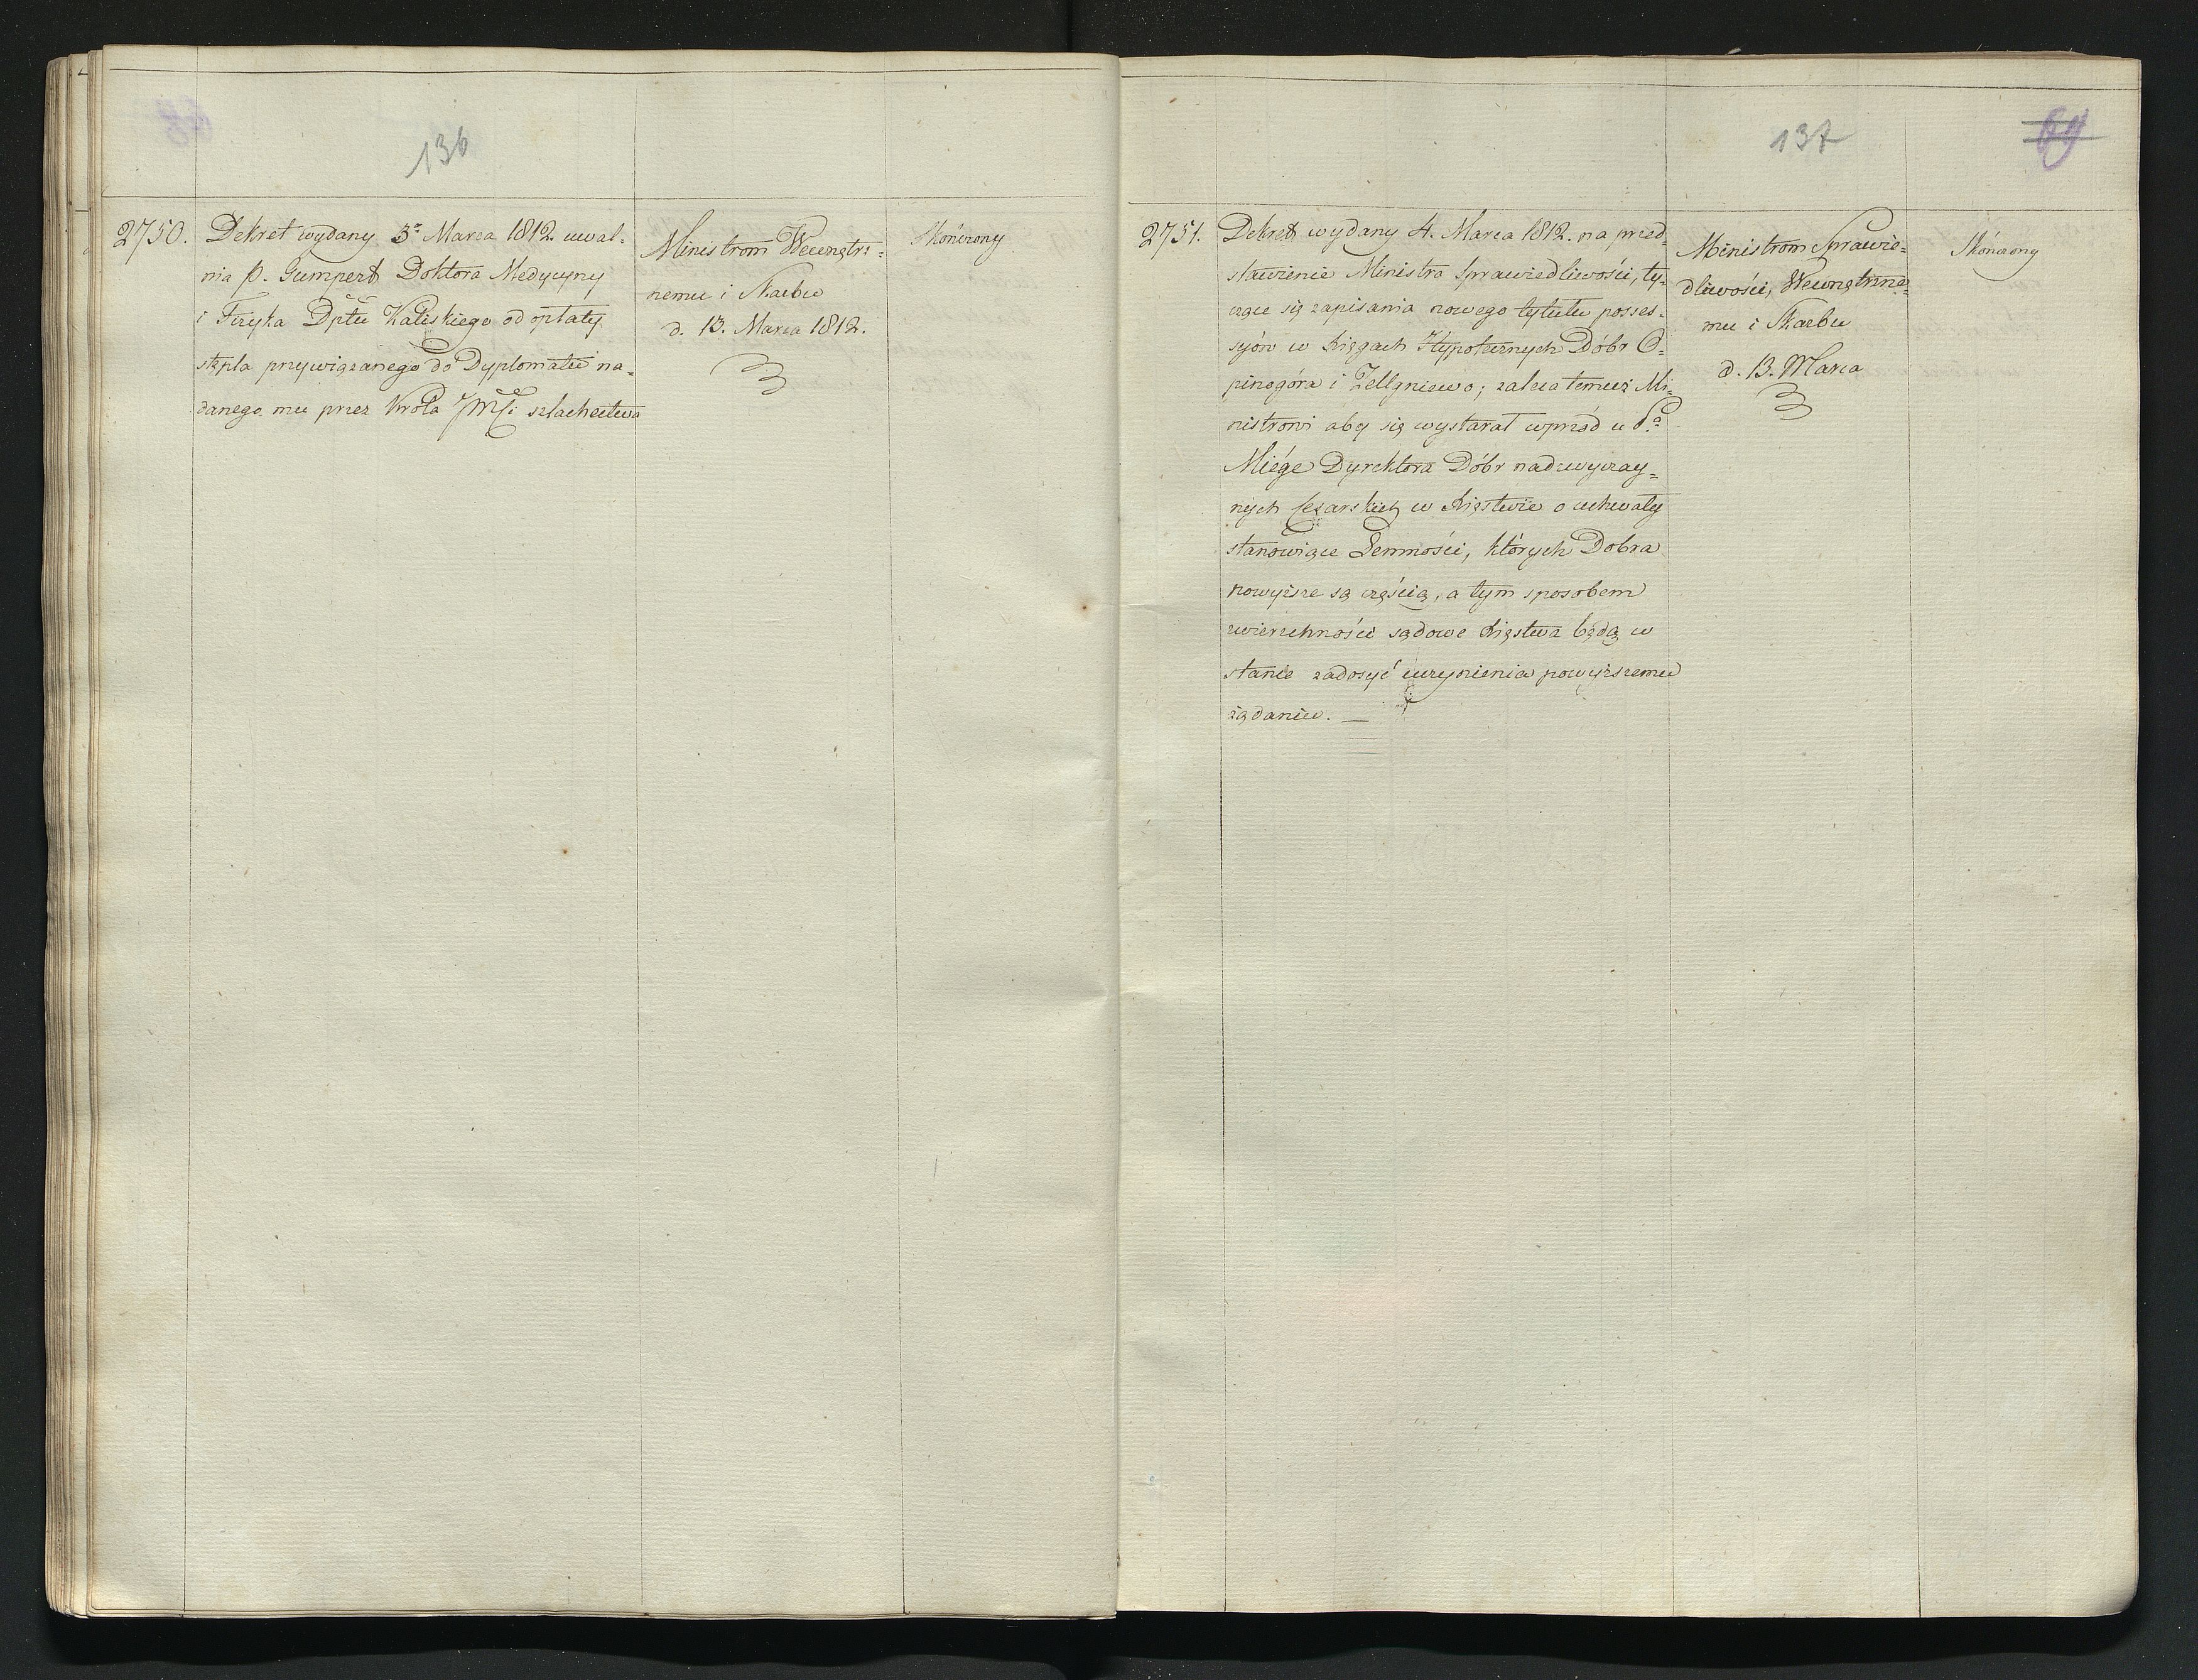 136
2750.
Dekret wydany 3º Marca 1812. uwal-
nia P. Gumpert Doktora Medycyny
i Fizyka Dptu Kaliskiego od opłaty
stępla przywiązanego do Dyplomatu na=
danego mu przez Króla JMći szlachectwa
Ministrom Wewnętrz=
nemu i Skarbu
d. 13. Marca 1812.
Skończony
137
69
2751.
Dekret wydany 4. Marca 1812. na przed=
stawienie Ministra Sprawiedliwości, ty=
czące się zapisania nowego tytułu posses=
syów w Księgach Hypotecznych Dóbr O=
pinogóra i Zellgniewo; zaleca temuż Mi=
nistrowi aby się wystarał wprzód u Pª
Miége Dyrektora Dóbr nadzwyczay=
nych Cesarskich w Księstwie o uchwały
stanowiące Lenności, których Dobra
powyższe są częścią, a tym sposobem
zwierzchności sądowe Księstwa będą w
stanie zadosyć uczynienia powyższemu
żądaniu. —
Ministrom Sprawie=
dliwości, Wewnętrzne=
mu i Skarbu
d. 13. Marca
Skończony